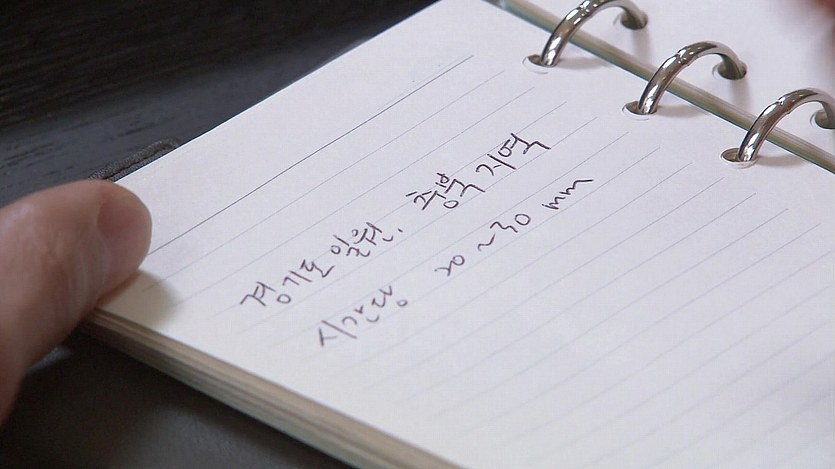 경기도 일원. 중북 지역
시간당 20~30 mm